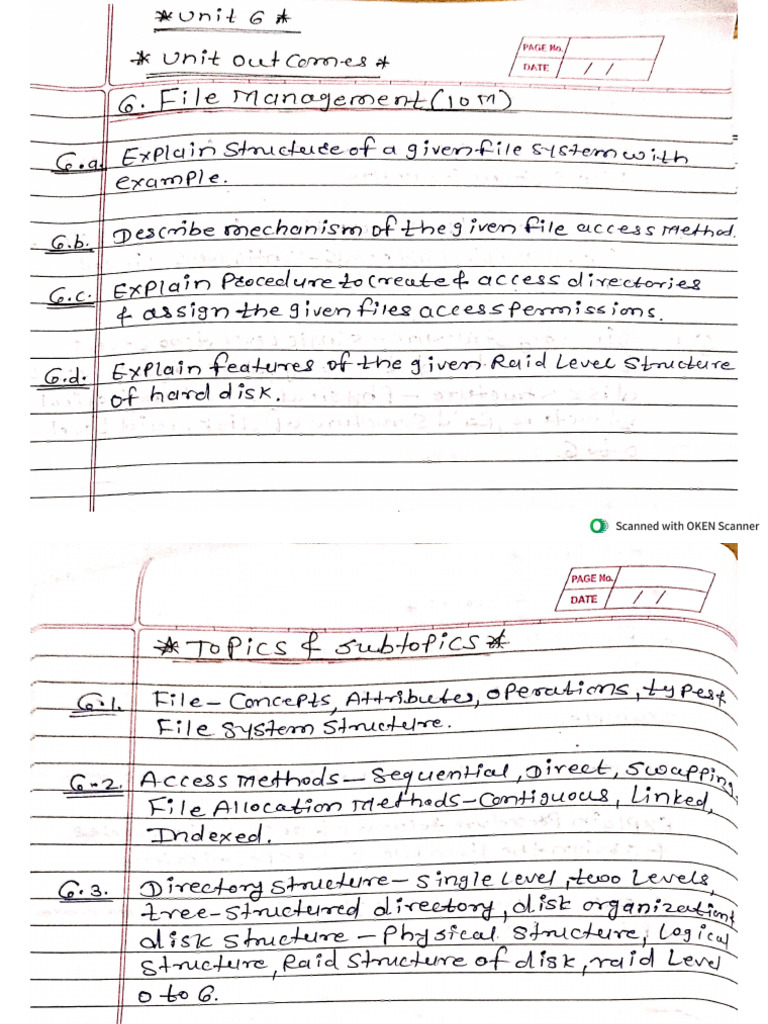 *Unit 6*
PAGE No.
*Unit Outcomes*
DATE / /
6. File Management (10M)
6.a. Explain Structure of a given file system with
example.
6.b. Describe mechanism of the given file access method.
6.c. Explain Procedure to Create & access directories
& assign the given files access permissions.
6.d. Explain features of the given Raid Level Structure
of hard disk.
Scanned with OKEN Scanner
PAGE No.
DATE / /
*Topics & subtopics*
6.1. File - Concepts, Attributes, operations, types &
File System Structure.
6.2. Access Methods - Sequential, Direct, Swapping,
File Allocation Methods - Contiguous, Linked,
Indexed.
6.3. Directory Structure - Single Level, two Levels,
tree-structured directory, disk organization &
disk structure - Physical structure, Logical
Structure, Raid Structure of disk, raid Level
0 to 6.